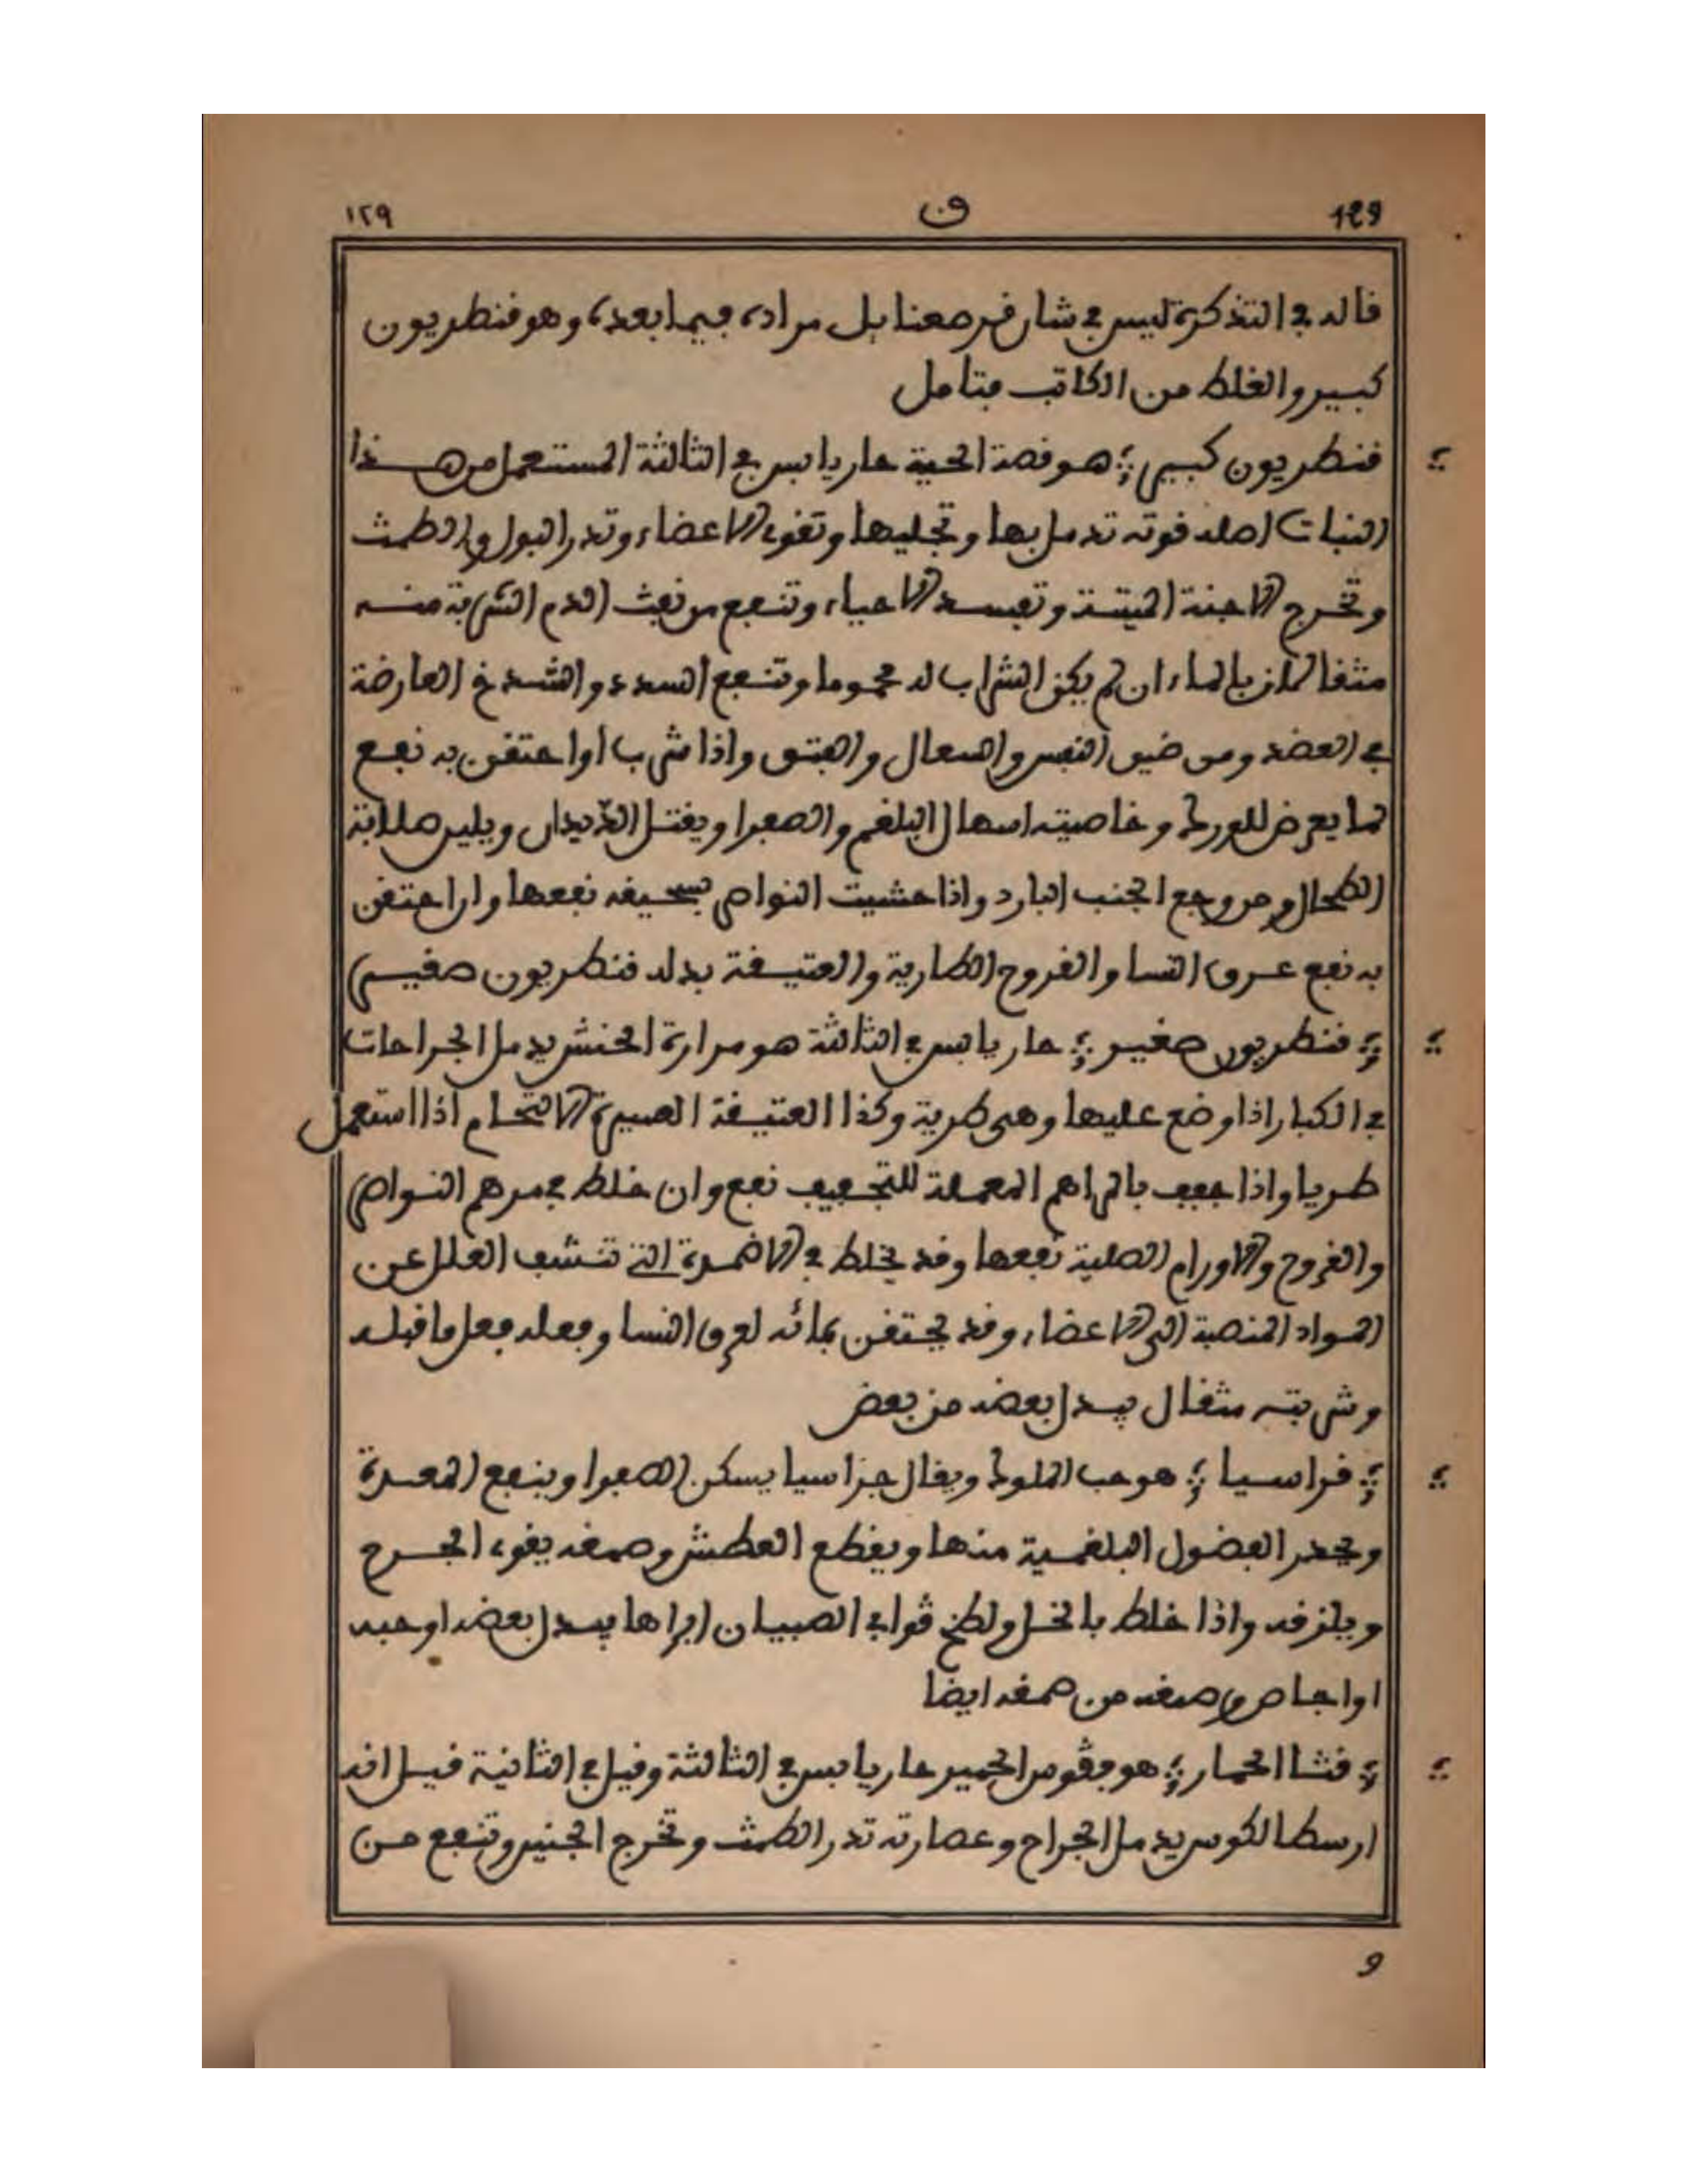 129 ق ١٢٩
قاله في التذكرة ليس في شان قرصعنا بل مراده فيما بعده وهو قنطريون
كبير والغلط من الكاتب فتامل
قنطريون كبير هو قصة الحية حار يابس في الثالثة المستعمل من هذا
النبات اصله قوته تدمل بها وتجليها وتقوي الاعضاء وتدر البول والطمث
وتخرج الاجنة الميتة وتفسد الاحياء وتنفع من نفث الدم الشربة منه
مثقالان بالماء ان لم يكن الشارب له محموما وتنفع السدد والشدخ العارضة
في العضد ومن ضيق النفس والسعال والفتق واذا شرب او احتقن به نفع
لما يعرض للورك وخاصيته اسهال البلغم والصفرا ويقتل الديدان ويلين صلابة
الطحال ومن وجع الجنب البارد واذا حشيت النواصر بسحيقه نفعها وان احتقن
به نفع عرق النسا والقروح الطارية والعتيقة بدله قنطريون صغير
قنطريون صغير حار يابس في الثالثة هو مرارة الحنش يدمل الجراحات
في الكبار اذا وضع عليها وهي طرية وكذا العتيقة العسيرة الالتحام اذا استعمل
طريا واذا جفف بالمراهم المعملة للتجفيف نفع وان خلط في مرهم النواصر
والقروح والاورام الصلبة نفعها وقد يخلط في الاضمدة التي تنشف العلل عن
المواد المنصبة الى الاعضاء وقد يحتقن بمائه لعرق النسا وفعله فعل ما قبله
وشربته مثقال يبدل بعضه من بعض
قراسيا هو حب الملوك ويقال جراسيا يسكن الصفرا وينفع المعدة
ويحدر الفضول البلغمية منها ويقطع العطش وصمغه يقوي الجرح
ويلزقه واذا خلط بالخل ولطخ قوابي الصبيان ابراها يبدل بعضه او حبه
او اجاص وصمغه من صمغه ايضا
قثا الحمار هو فقوس الحمير حار يابس في الثالثة وقيل في الثانية قيل انه
ارسطالكوس يدمل الجراح وعصارته تدر الطمث وتخرج الجنين وتنفع من
و